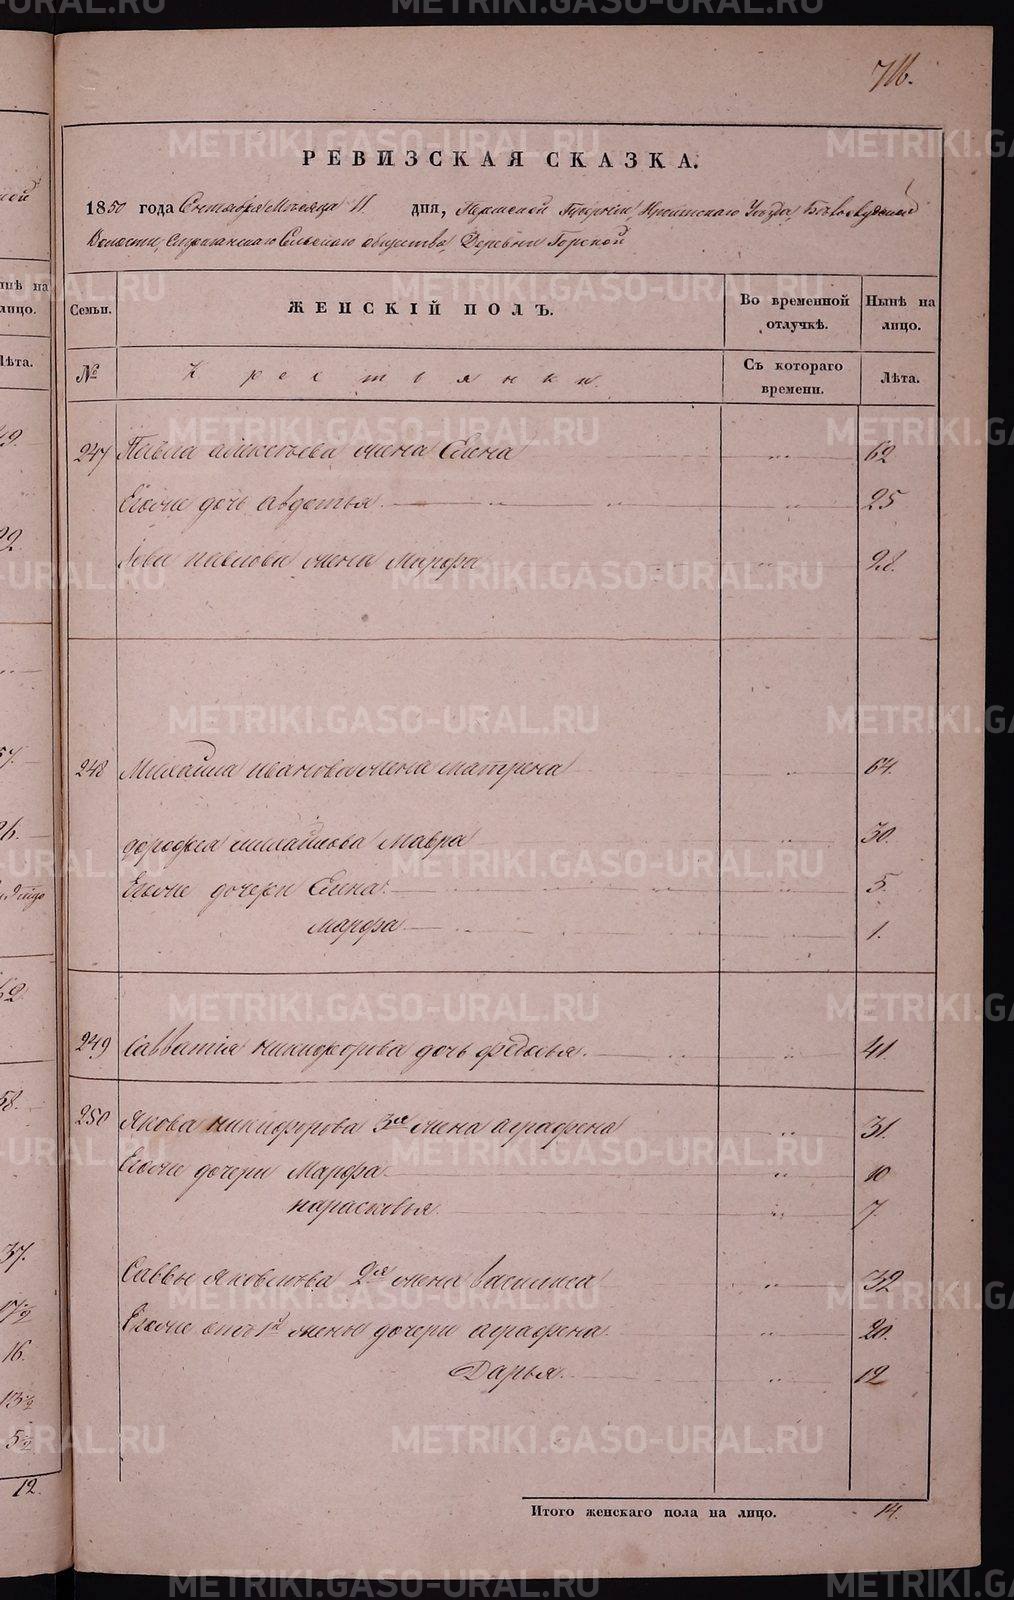 711.
РЕВИЗСКАЯ СКАЗКА.
1850 года Сентября Месяца 11 дня, Пермской Губернии, Ирбитскаго Уезда, Белослудской
Волости, Стриганскаго Сельскаго общества, Деревни Горской
Семьи. ЖЕНСКІЙ ПОЛЪ. Во временной отлучкѣ. Нынѣ на лицо.
№ Крестьянки. Съ котораго времени. Лѣта.
247 Павла алексеева жена Елена 62
Егоже дочь авдотья 25
павлова жена Марфа 28.
248 Михайла иванова жена матрена 64.
дорофея михайлова Мавра 30.
Егоже дочери Елена. 5.
марфа 1.
249 Савватія никифорова дочь федосья. 41.
250 Якова никифорова 3ая жена аграфена 31.
Егоже дочери Марфа. 10
парасковья. 7.
Саввы яковлева 2ая жена василиса 32
Егоже отъ 1й жены дочери аграфена. 20.
Дарья. 12
Итого женскаго пола на лицо. 14.
METRIKI.GASO-URAL.RU